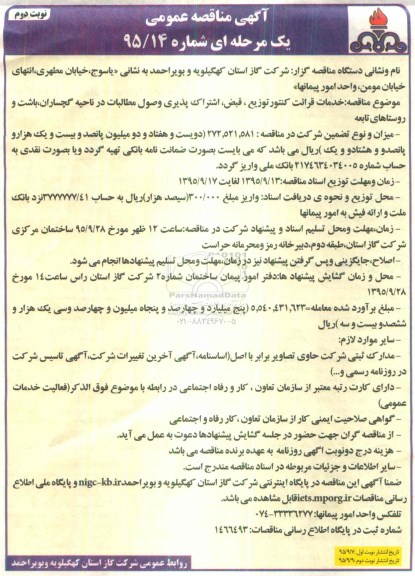 نوبت دوم
آگهی مناقصه عمومی
یک مرحله ای شماره ۹۵/۱۴
نام ونشانی دستگاه مناقصه گزار: شرکت گاز استان کهگیلویه و بویراحمد به نشانی «یاسوج،خیابان مطهری،انتهای
خیابان مومن، واحد امور پیمانها»
موضوع مناقصه:خدمات قرائت کنتور،توزیع ، قبض، اشتراک پذیری وصول مطالبات در ناحیه گچساران،باشت و
روستاهای تابعه
– میزان و نوع تضمین شرکت در مناقصه : ۲۷۲,۵۲۱,۵۸۱ (دویست و هفتاد و دو میلیون پانصد و بیست و یک هزارو
پانصد و هشتادو و یک )ریال می باشد که می بایست بصورت ضمانت نامه بانکی تهیه گردد ویا بصورت نقدی به
حساب شماره ۲۱۷۴۶۳۴۰۳۴۰۰۵ بانک ملی واریز گردد.
– زمان ومهلت توزیع اسناد مناقصه:۱۳۹۵/۹/۱۳ لغایت ۱۳۹۵/۹/۱۷
– محل توزیع و نحوه ی دریافت اسناد: واریز مبلغ ۳۰۰/۰۰۰(سیصد هزار)ریال به حساب ۳۷۷۷۷۷۷/۴۱نزد بانک
ملت و ارائه فیش به امور پیمانها
– زمان،مهلت ومحل تسلیم اسناد و پیشنهاد شرکت در مناقصه:ساعت ۱۲ ظهر مورخ ۹۵/۹/۲۸ ساختمان مرکزی
شرکت گاز استان،طبقه دوم،دبیرخانه رمز ومحرمانه حراست
– اصلاح،جایگزینی وپس گرفتن پیشنهاد نیز در زمان،مهلت ومحل تسلیم پیشنهادها انجام می شود.
– محل و زمان گشایش پیشنهاد ها:دفتر امور پیمان ساختمان شماره۲ شرکت گاز استان راس ساعت۱۴ مورخ
۱۳۹۵/۹/۲۸
– مبلغ برآورد شده معامله=۵,۴۵۰,۴۳۱,۶۲۳ (پنج میلیارد و چهارصد و پنجاه میلیون و چهارصد وسی یک هزار و
ششصدو بیست و سه )ریال
– سایر موارد لازم:
– مدارک ثبتی شرکت حاوی تصاویر برابر با اصل(اساسنامه،آگهی آخرین تغییرات شرکت،آگهی تاسیس شرکت
در روزنامه رسمی و...)
– دارای کارت رتبه معتبر از سازمان تعاون ، کار و رفاه اجتماعی در رابطه با موضوع فوق الذکر(فعالیت خدمات
عمومی)
– گواهی صلاحیت ایمنی کار از سازمان تعاون ، کار رفاه و اجتماعی
– از مناقصه گران جهت حضور در جلسه گشایش پیشنهادها دعوت به عمل می آید.
– هزینه درج دونوبت آگهی روزنامه به عهده برنده مناقصه می باشد
– سایر اطلاعات و جزئیات مربوطه در اسناد مناقصه مندرج است.
ضمنا آگهی این مناقصه در پایگاه اینترنتی شرکت گاز استان کهگیلویه و بویراحمدnigc-kb.ir و پایگاه ملی اطلاع
رسانی مناقصات iets.mporg.irقابل مشاهده می باشد.
تلفکس واحد امور پیمانها: ۳۳۳۳۶۲۷۷-۰۷۴
شماره ثبت در پایگاه اطلاع رسانی مناقصات: ۱۴۶۶۴۹۳
تاریخ انتشار نوبت اول: ۹۵/۹/۷
تاریخ انتشار نوبت دوم: ۹۵/۹/۹
روابط عمومی شرکت گاز استان کهگیلویه وبویراحمد
ParsNamadData
۰۲۱-۸۸۳۴۹۶۷۰-۵